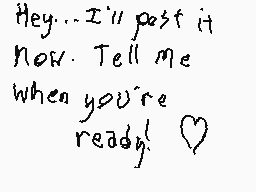 Hey...I'll post it
now. Tell me
when you're
ready! ♡